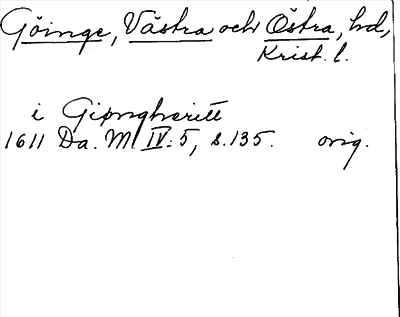 Göinge, Västra och Östra, hd,
Krist. l.
i Gipngheritt
1611 Da. M. IV: 5, s. 135. orig.